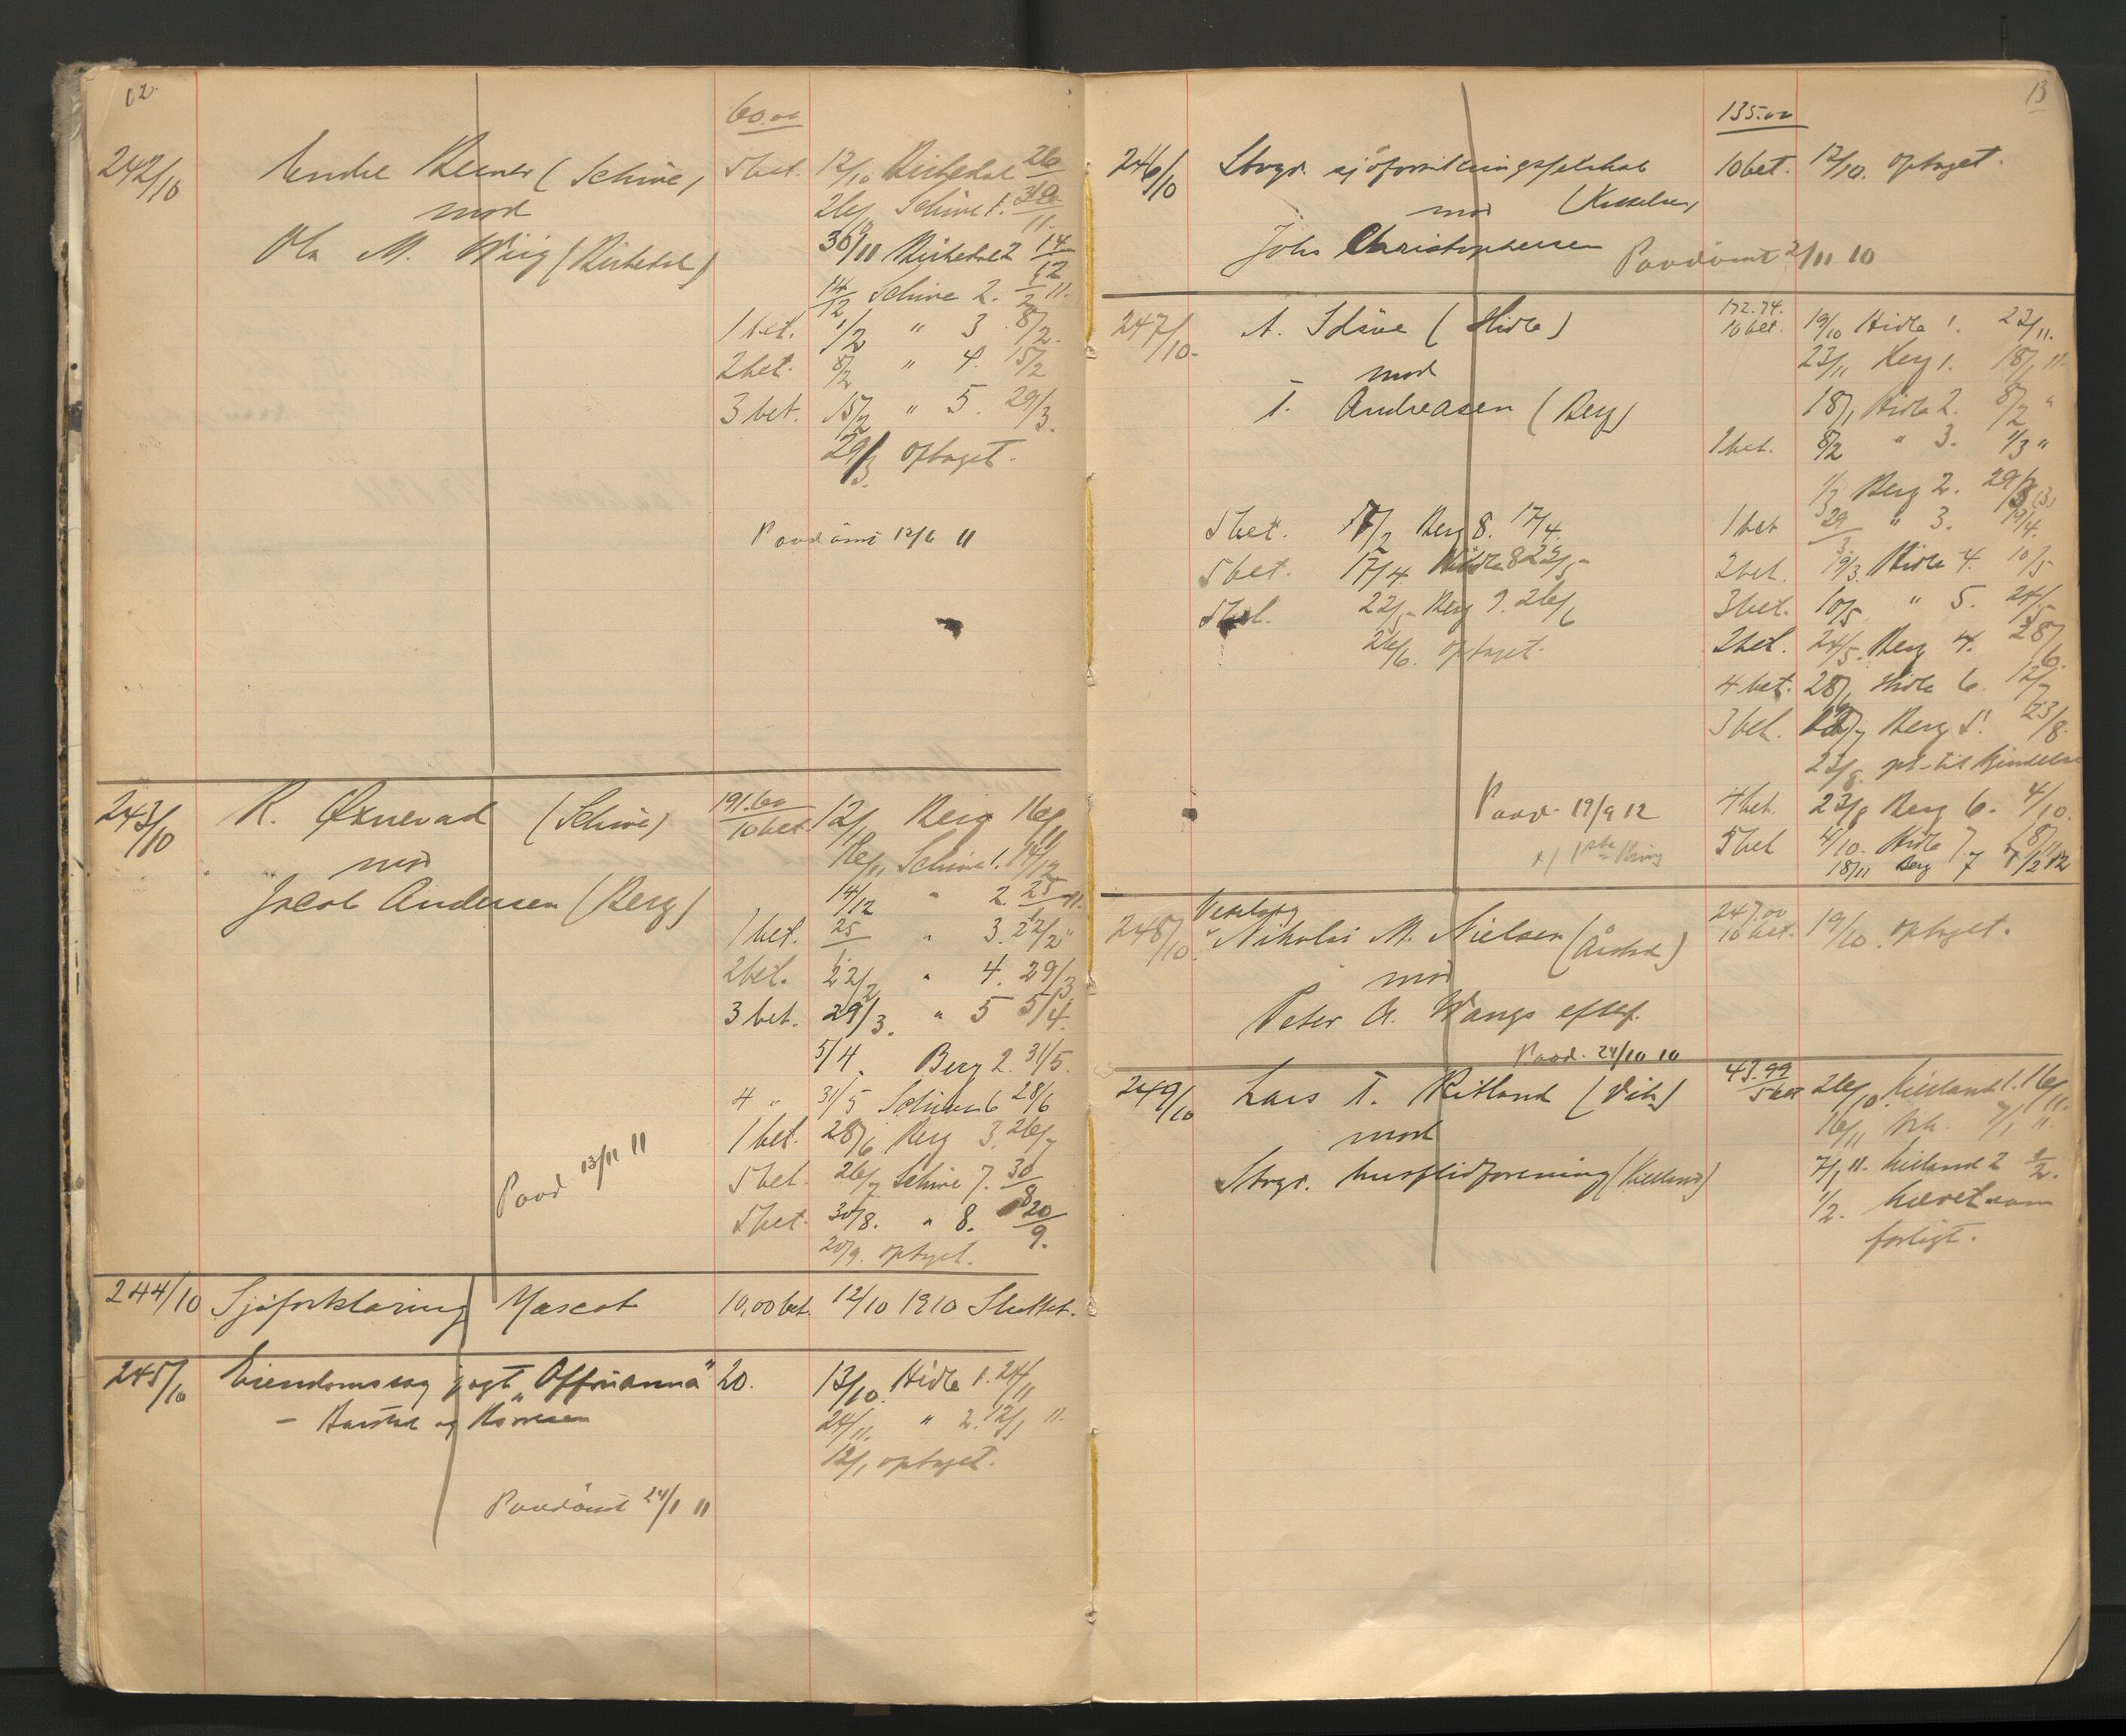 12.
60.00
242/10 Endre Reiner (Schive) 5 bet. 12/10 Risbedal 26
mod 26/ Schive 1. 30/11.
Ola M. Wiig (Risbedal) 30/11 Risbedal 2 14/12
14/12 Schive 2. 1/2 11.
1 bet. 1/2 " 3 8/2.
2 bet. 8/2 " 4. 15/2
3 bet. 15/2 " 5. 29/3.
29/3. optaget.
Paadömt 12/6 11
243/10 R. Øxnevad (Schive) 191.60 10 bet 12/10 Berg 16/11
mod 16/11 Schive 1. 14/12
Jacob Andersen (Berg) 14/12 " 2. 25/1 11.
1 bet. 25/1 " 3. 22/2 "
2 bet. 22/2 " 4. 29/3
3 bet. 29/3. " 5 5/4.
5/4. Berg 2. 31/5.
4 " 31/5 Schive 6 28/6
1 bet. 28/6 Berg 3. 26/7
Paad 13/11 11
5 bet. 26/7 Schive 7. 30/8
5 bet. 30/8. " 8. 20/9.
20/9. optaget.
244/10 Sjøforklaring Mascot 10,00 bet. 12/10 1910 Sluttet.
245/10 Eiendomssag jagt „Offruanna" 20. 13/10. Hidle 1. 24/11
24/11. " 2. 12/1 11.
12/1 optaget.
Paadömt 24/1 11
13
135.00
246/10 Stvgr. sjöforsikringsselskab 10 bet. 12/10. optaget.
mod
Johs Christophersen Paadömt 2/11 10
247/10. A. Idsöe (Hidle) 172.74. 10 bet. 19/10 Hidle 1. 23/11.
mod 23/11 Berg 1. 18/1 11.
T. Andreasen (Berg) 18/1 Hidle 2. 8/2 "
1 bet. 8/2 " 3. 1/3 "
1/3 Berg 2. 29/3
5 bet. 7/2 Berg 8. 17/4. 1 bet 29/3 " 3. 19/4.
5 bet. 17/4. Hidle 8 22/5 2 bet. 19/3. Hidle 4. 10/5
5 bet. 22/5 Berg 9. 26/6 3 bet. 10/5 " 5. 24/5
26/6. optaget. 2 bet. 24/5. Berg 4. 28/6.
4 bet. 28/6 Hidle 6. 12/7
3 bet. 12/7 Berg 5. 23/8.
23/8. opt. til Kjendelse
Paad. 19/9 12 4 bet. 23/8 Berg 6. 4/10.
5 bet 4/10. Hidle 7. 18/11
18/11 Berg 7 7/2 12
248/10. Vexelsag
Nikolai M. Nielsen (Årstad) 247.00 10 bet. 19/10. optaget.
mod
Peter A. Wangs efterf.
Paad. 24/10 10
249/10 Lars T. Ritland (Vik) 43.99 5 bet 26/10 Kielland 1. 16/11.
mod 16/11 Vik. 7/1 11.
Stvgr. husflidforening (Kielland) 7/1 11. Kielland 2 1/2.
1/2. hævet som
forligt.